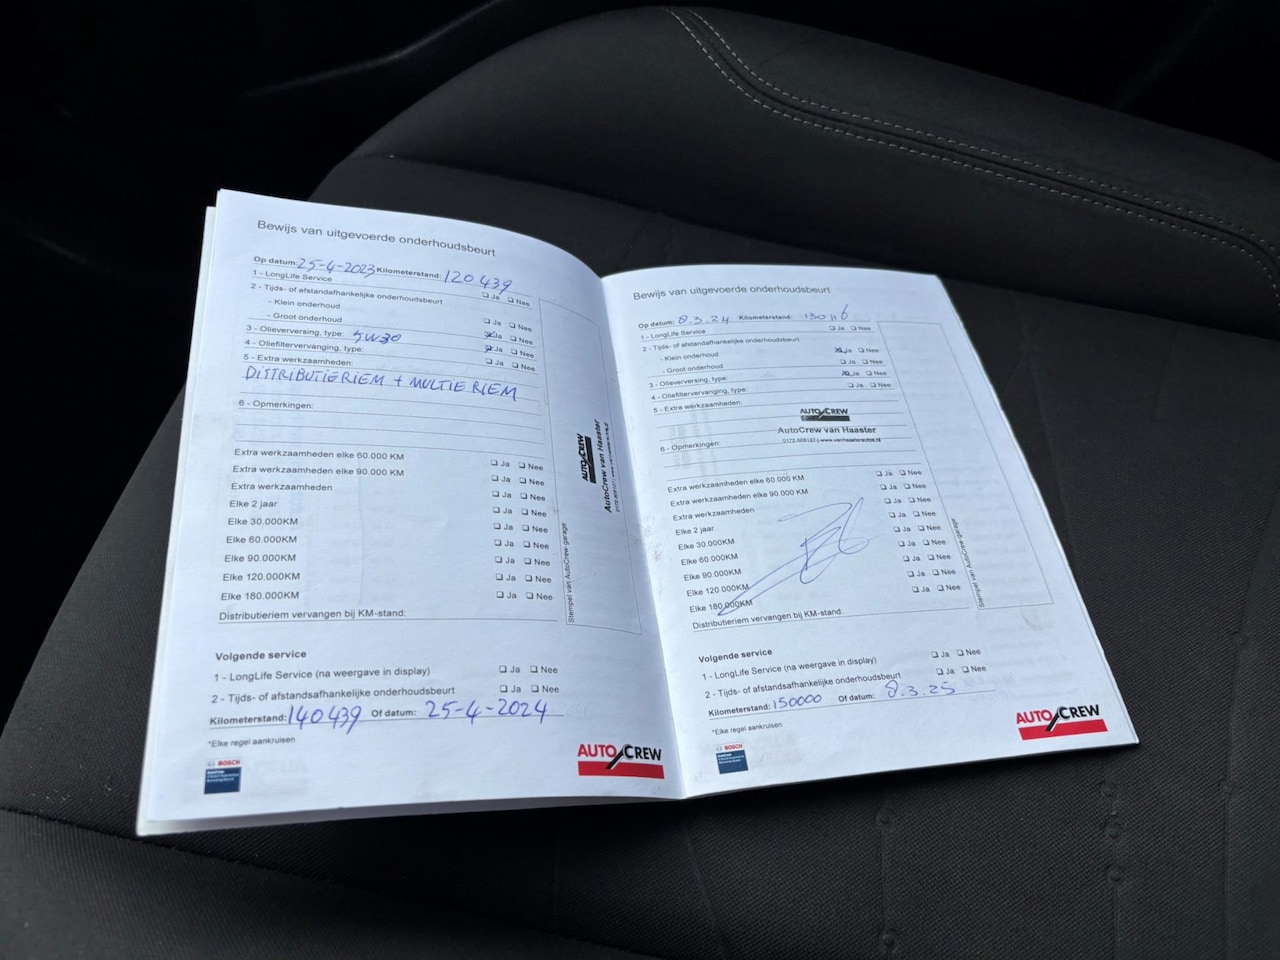 Bewijs van uitgevoerde onderhoudsbeurt
Op datum: 25-4-2023 Kilometerstand: 120 439
1 - LongLife Service ❑ Ja ❑ Nee
2 - Tijds- of afstandafhankelijke onderhoudsbeurt
- Klein onderhoud ❑ Ja ❑ Nee
- Groot onderhoud ❑ Ja ❑ Nee
3 - Olieverversing, type: 5W30 Ja ❑ Nee
4 - Oliefiltervervanging, type: Ja ❑ Nee
5 - Extra werkzaamheden:
DISTRIBUTIERIEM + MULTIE RIEM
6 - Opmerkingen:
Extra werkzaamheden elke 60.000 KM ❑ Ja ❑ Nee
Extra werkzaamheden elke 90.000 KM ❑ Ja ❑ Nee
Extra werkzaamheden ❑ Ja ❑ Nee
Elke 2 jaar ❑ Ja ❑ Nee
Elke 30.000KM ❑ Ja ❑ Nee
Elke 60.000KM ❑ Ja ❑ Nee
Elke 90.000KM ❑ Ja ❑ Nee
Elke 120.000KM ❑ Ja ❑ Nee
Elke 180.000KM ❑ Ja ❑ Nee
Distributieriem vervangen bij KM-stand:
AUTO CREW
AutoCrew van Haaster
Stempel van AutoCrew-garage
Volgende service
1 - LongLife Service (na weergave in display) ❑ Ja ❑ Nee
2 - Tijds- of afstandsafhankelijke onderhoudsbeurt ❑ Ja ❑ Nee
Kilometerstand: 140439 Of datum: 25-4-2024
*Elke regel aankruisen
BOSCH
AUTO CREW
Bewijs van uitgevoerde onderhoudsbeurt
Op datum: 8.3.24 Kilometerstand: 130116
1 - LongLife Service ❑ Ja ❑ Nee
2 - Tijds- of afstandafhankelijke onderhoudsbeurt
- Klein onderhoud Ja ❑ Nee
- Groot onderhoud ❑ Ja ❑ Nee
3 - Olieverversing, type: Ja ❑ Nee
4 - Oliefiltervervanging, type: ❑ Ja ❑ Nee
5 - Extra werkzaamheden:
AUTO CREW
AutoCrew van Haaster
6 - Opmerkingen:
Extra werkzaamheden elke 60.000 KM ❑ Ja ❑ Nee
Extra werkzaamheden elke 90.000 KM ❑ Ja ❑ Nee
Extra werkzaamheden ❑ Ja ❑ Nee
Elke 2 jaar ❑ Ja ❑ Nee
Elke 30.000KM ❑ Ja ❑ Nee
Elke 60.000KM ❑ Ja ❑ Nee
Elke 90.000KM ❑ Ja ❑ Nee
Elke 120.000KM ❑ Ja ❑ Nee
Elke 180.000KM ❑ Ja ❑ Nee
Distributieriem vervangen bij KM-stand:
Stempel van AutoCrew-garage
Volgende service
1 - LongLife Service (na weergave in display) ❑ Ja ❑ Nee
2 - Tijds- of afstandsafhankelijke onderhoudsbeurt ❑ Ja ❑ Nee
Kilometerstand: 150000 Of datum: 8.3.25
*Elke regel aankruisen
BOSCH
AUTO CREW